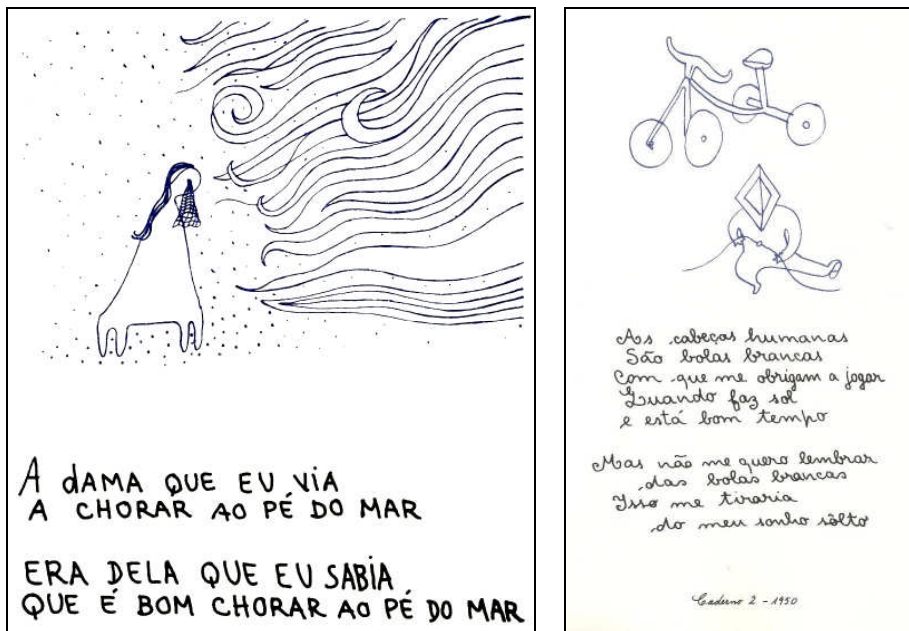 A dAMA QUE EU VIA
A CHORAR AO PÉ DO MAR
ERA DELA QUE EU SABIA
QUE É BOM CHORAR AO PÉ DO MAR
As cabeças humanas
São bolas brancas
Com que me obrigam a jogar
Quando faz sol
e está bom tempo
Mas não me quero lembrar
das bolas brancas
Isso me tiraria
do meu sonho sôlto
Caderno 2 - 1950